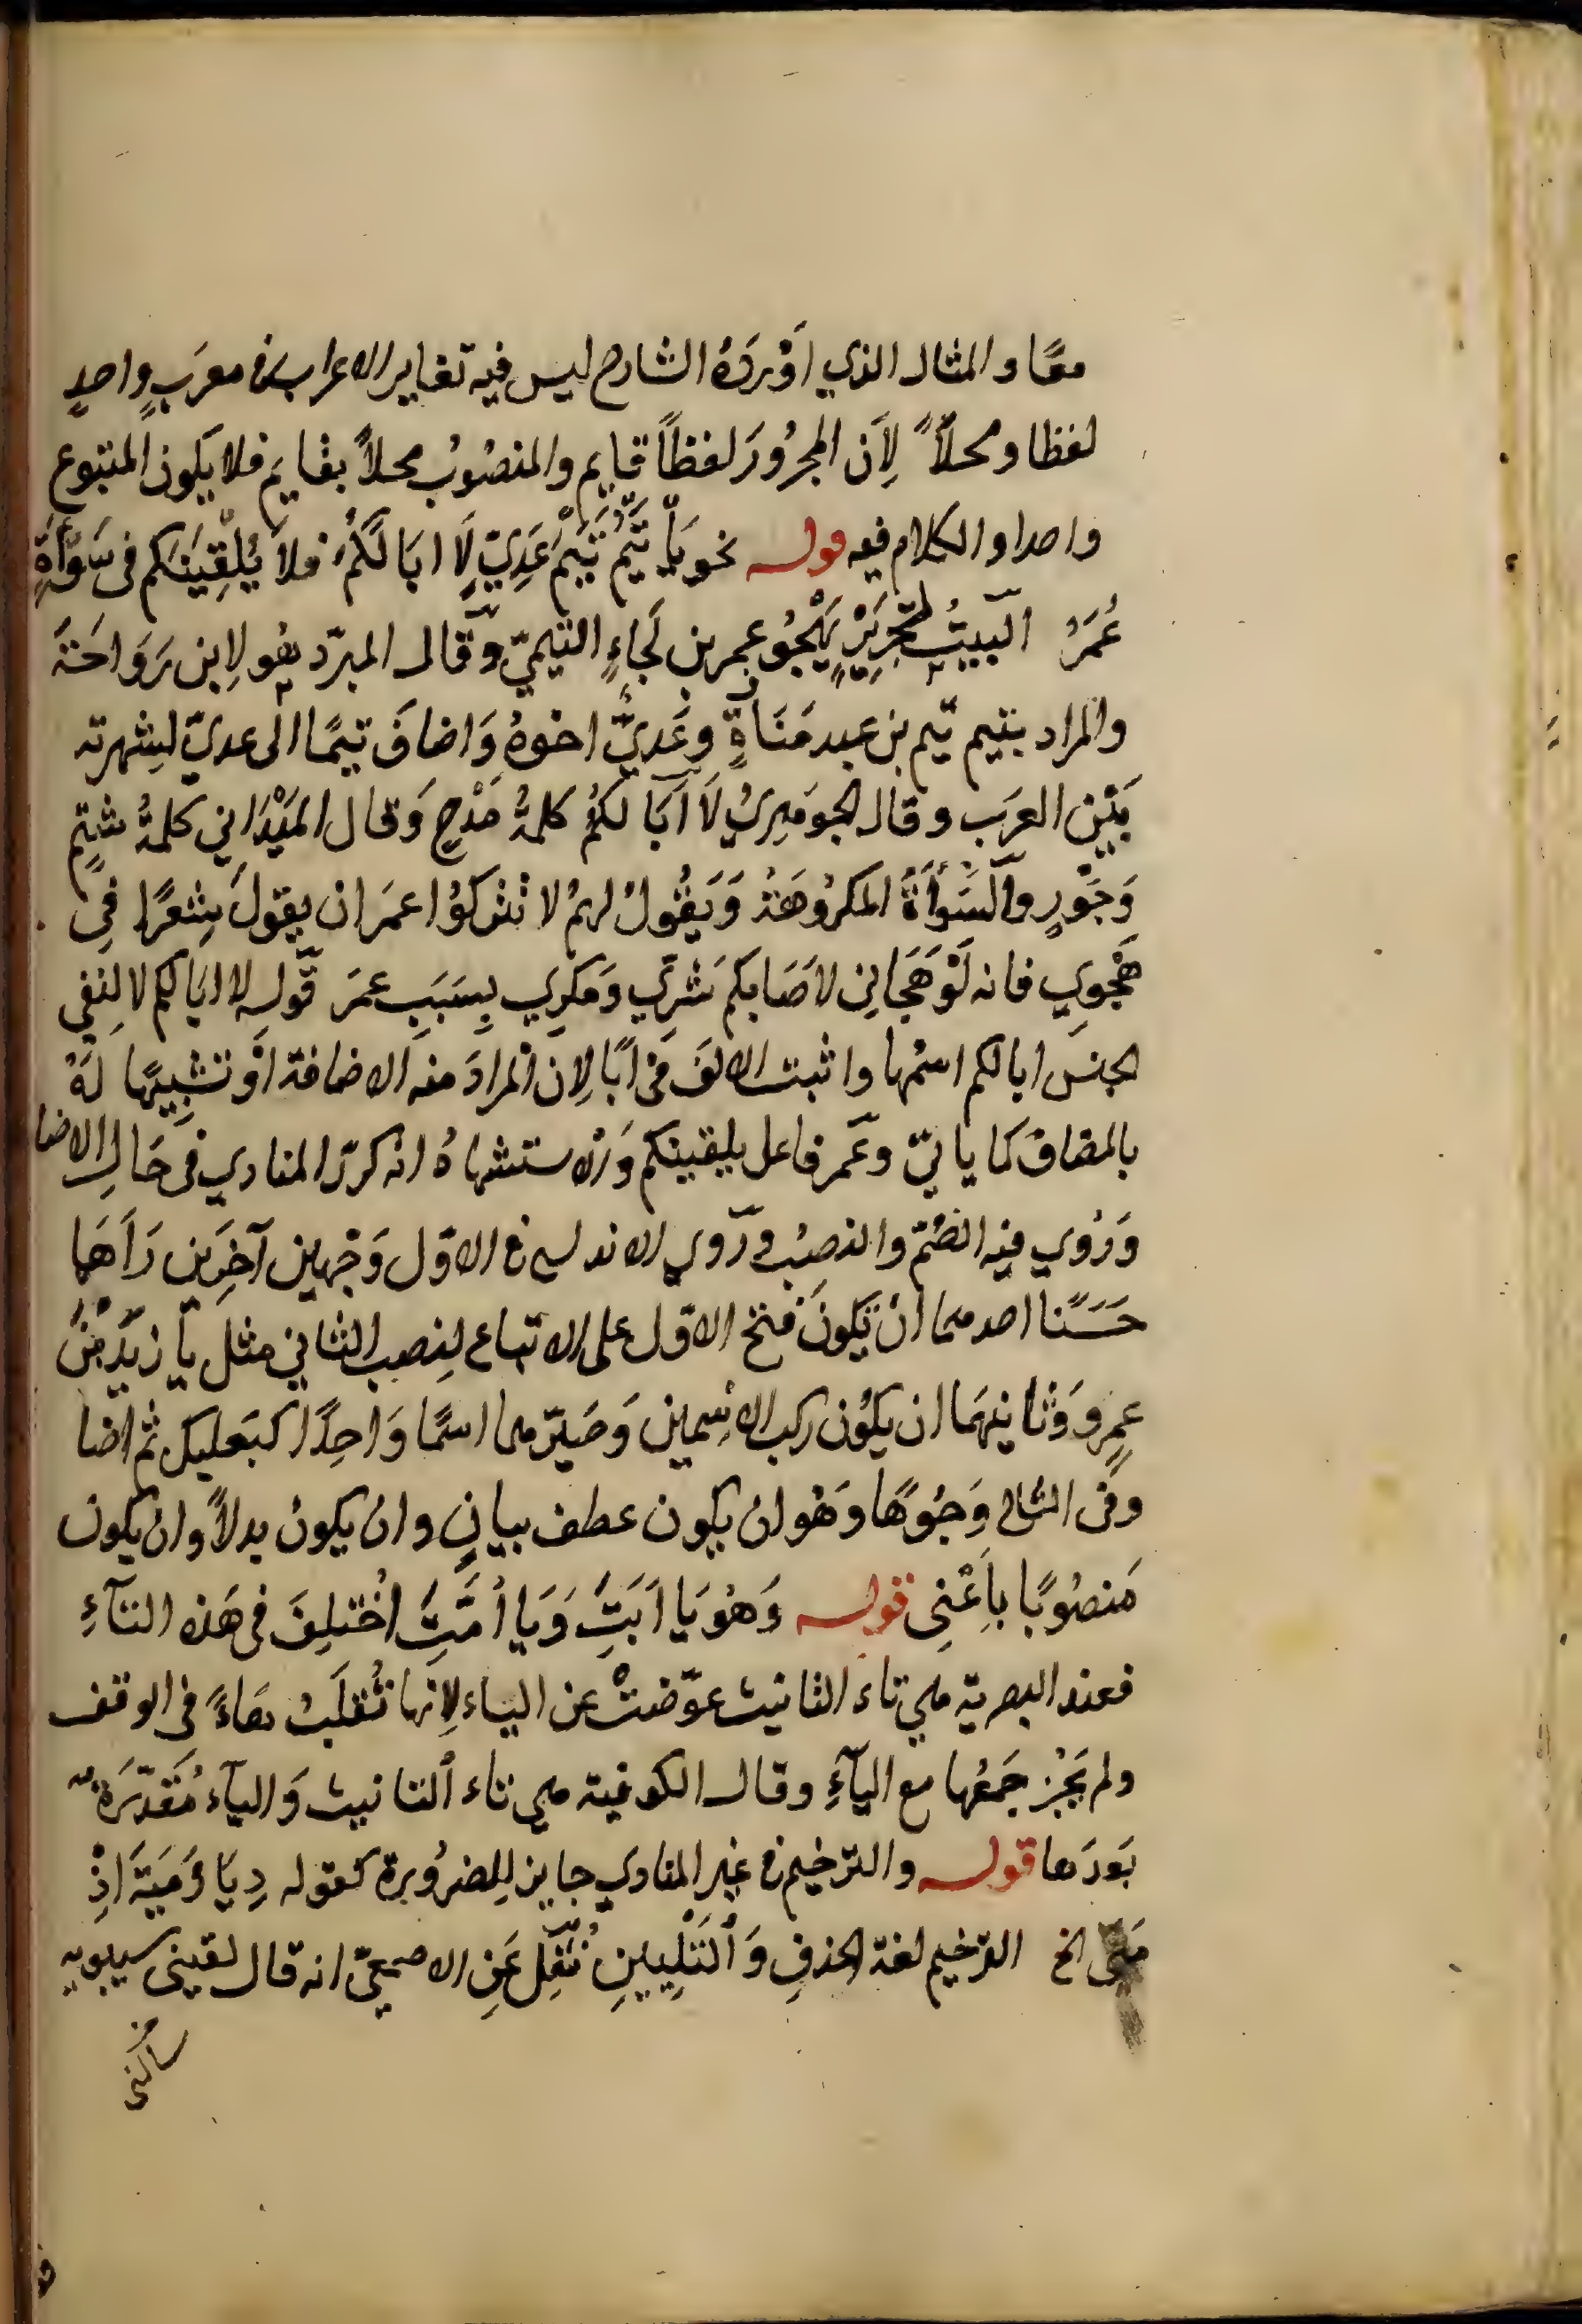 معًا والمثال الذي اَوْرَدَهُ الشارح ليس فيه تغاير الاعراب فى معرَبٍ واحدٍ
لفظا ومحلاً لِاَن المجرُورَ لفظاً قايم والمنصُوبُ محلاً بقايم فلا يكون المتبوع
واحدا والكلام فيه قوله نحو يَا تَيْمُ تَيْمَ عَدِيٍّ لَا ابَا لَكُمُ فلا يُلْقِيَنكم فى سَوْأَةٍ
عُمَرُ البيتُ لجَرِيْرٍ يَهْجُو عمر بن لَجَاءٍ التيميّ وَقال المبرّد هُو لِابن رَوَاحَة
والمراد بتيم تيم بن عبد مَنَاةٍ وعَدِيٌّ اخوهُ وَاضافَ تيمًا الى عديّ لِشهرته
بَيْن العرَب وقال الجوهَرِيُ لَا اَبَا لكُمُ كلمةُ مَدْحٍ وَقال المَيْدَاني كلمةُ شتمٍ
وَجَوْرٍ والسَّوْأَةُ المكرُوهَة وَيَقُولُ لهمُ لا تتركوُا عمَر ان يقولَ شِعرًا فِى
هَجْوِي فانه لَوْ هَجَانِى لاَصَابكم شرِّي وَمكرِي بِسَبَبِ عمَر قوله لا ابا لكم لا لِنفي
الجنس ابا لكم اسمُها واثبت الالفَ فى اَبًا لِان المرادَ منه الاضافة اَوْ تشبيهًا لَهُ
بالمضاف كما ياتيّ وعُمر فاعل يلقينكم وَالاستشهادُ انه كررّ المنادي فى حَالِ الاضا
وَرُوي فيه الضُم والنصبُ ورَوي الاندلسي فى الاوّل وَجهين آخرَين رَاَهما
حَسَنًا احدهما انْ تَكونَ فتح الاوّل على الاتباع لِنصب الثاني مثل يا زيدَ بنَ
عمرٍو وَثانيهمَا ان يكوُن ركب الاِسمين وَصَيّرهما اسمًا وَاحِدًا كبَعلبك ثم اضا
وفى الثانى وَجُوهًا وَهُو ان يكون عطف بيانٍ وان يكونُ بدلاً وان يكون
مَنصُوبًا باَعْنِى قوله وَهُوَ يَا اَبَتِ وَيَا اُمَّتِ اُخْتلِفَ فى هَذه التآءِ
فعند البصرية هي تاء التانيث عوّضتْ عن الياء لِانها تُقلَبُ هاءً فى الوقف
ولم يَجُز جَمعُها مع اليآءِ وقال الكوفية هى تاء التانيث وَاليآء مُقدّرَةٌ
بَعدَها قوله والترخيم فى غير المنادي جايز لِلضرُورة كقوله دِيَا رَ مَيَّةَ اِذْ
مَىّ الخ الترخيم لغة الحذفِ وَالتَلْيينِ نُقِلَ عَنِ الاصمعيّ انه قال لقينى سيبويه